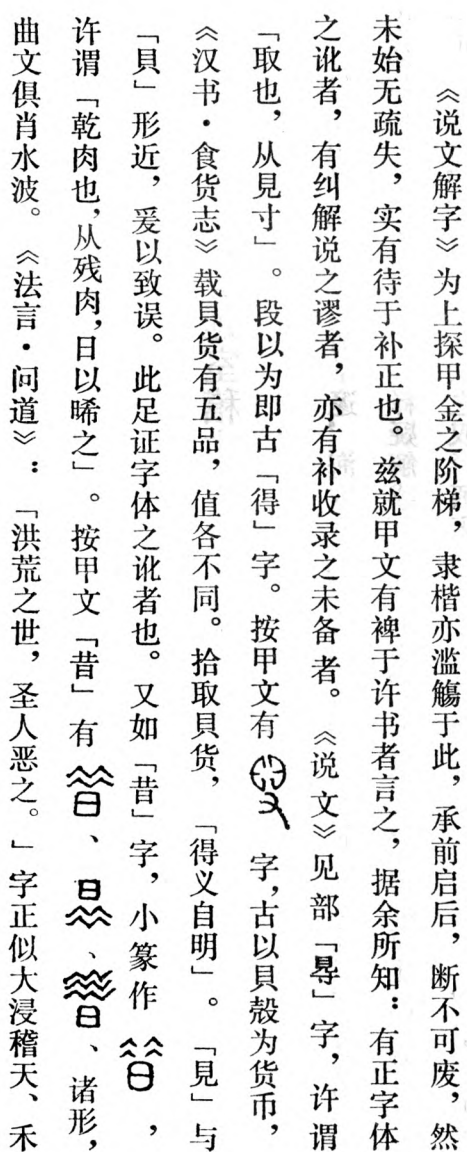 《说文解字》为上探甲金之阶梯，隶楷亦滥觞于此，承前启后，断不可废，然
未始无疏失，实有待于补正也。兹就甲文有裨于许书者言之，据余所知：有正字体
之讹者，有纠解说之谬者，亦有补收录之未备者。《说文》见部「㝵」字，许谓
「取也，从見寸」。段以为即古「得」字。按甲文有字，古以貝殼为货币，
《汉书·食货志》载貝货有五品，值各不同。拾取貝货，「得义自明」。「見」与
「貝」形近，爰以致误。此足证字体之讹者也。又如「昔」字，小篆作，
许谓「乾肉也，从残肉，日以晞之」。按甲文「昔」有、、、诸形，
曲文俱肖水波。《法言·问道》：「洪荒之世，圣人恶之。」字正似大浸稽天、禾